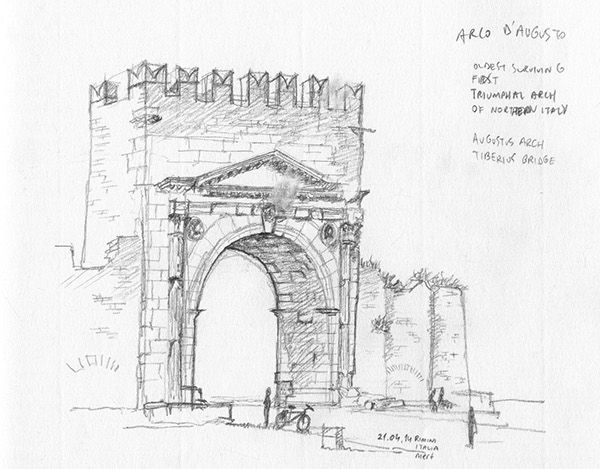 ARCO D'AUGUSTO
OLDEST SURVIVING
TRIUMPHAL ARCH
OF NORTHERN ITALY
AUGUSTUS ARCH
TIBERIUS BRIDGE
21.04.14 RIMINI
ITALIA